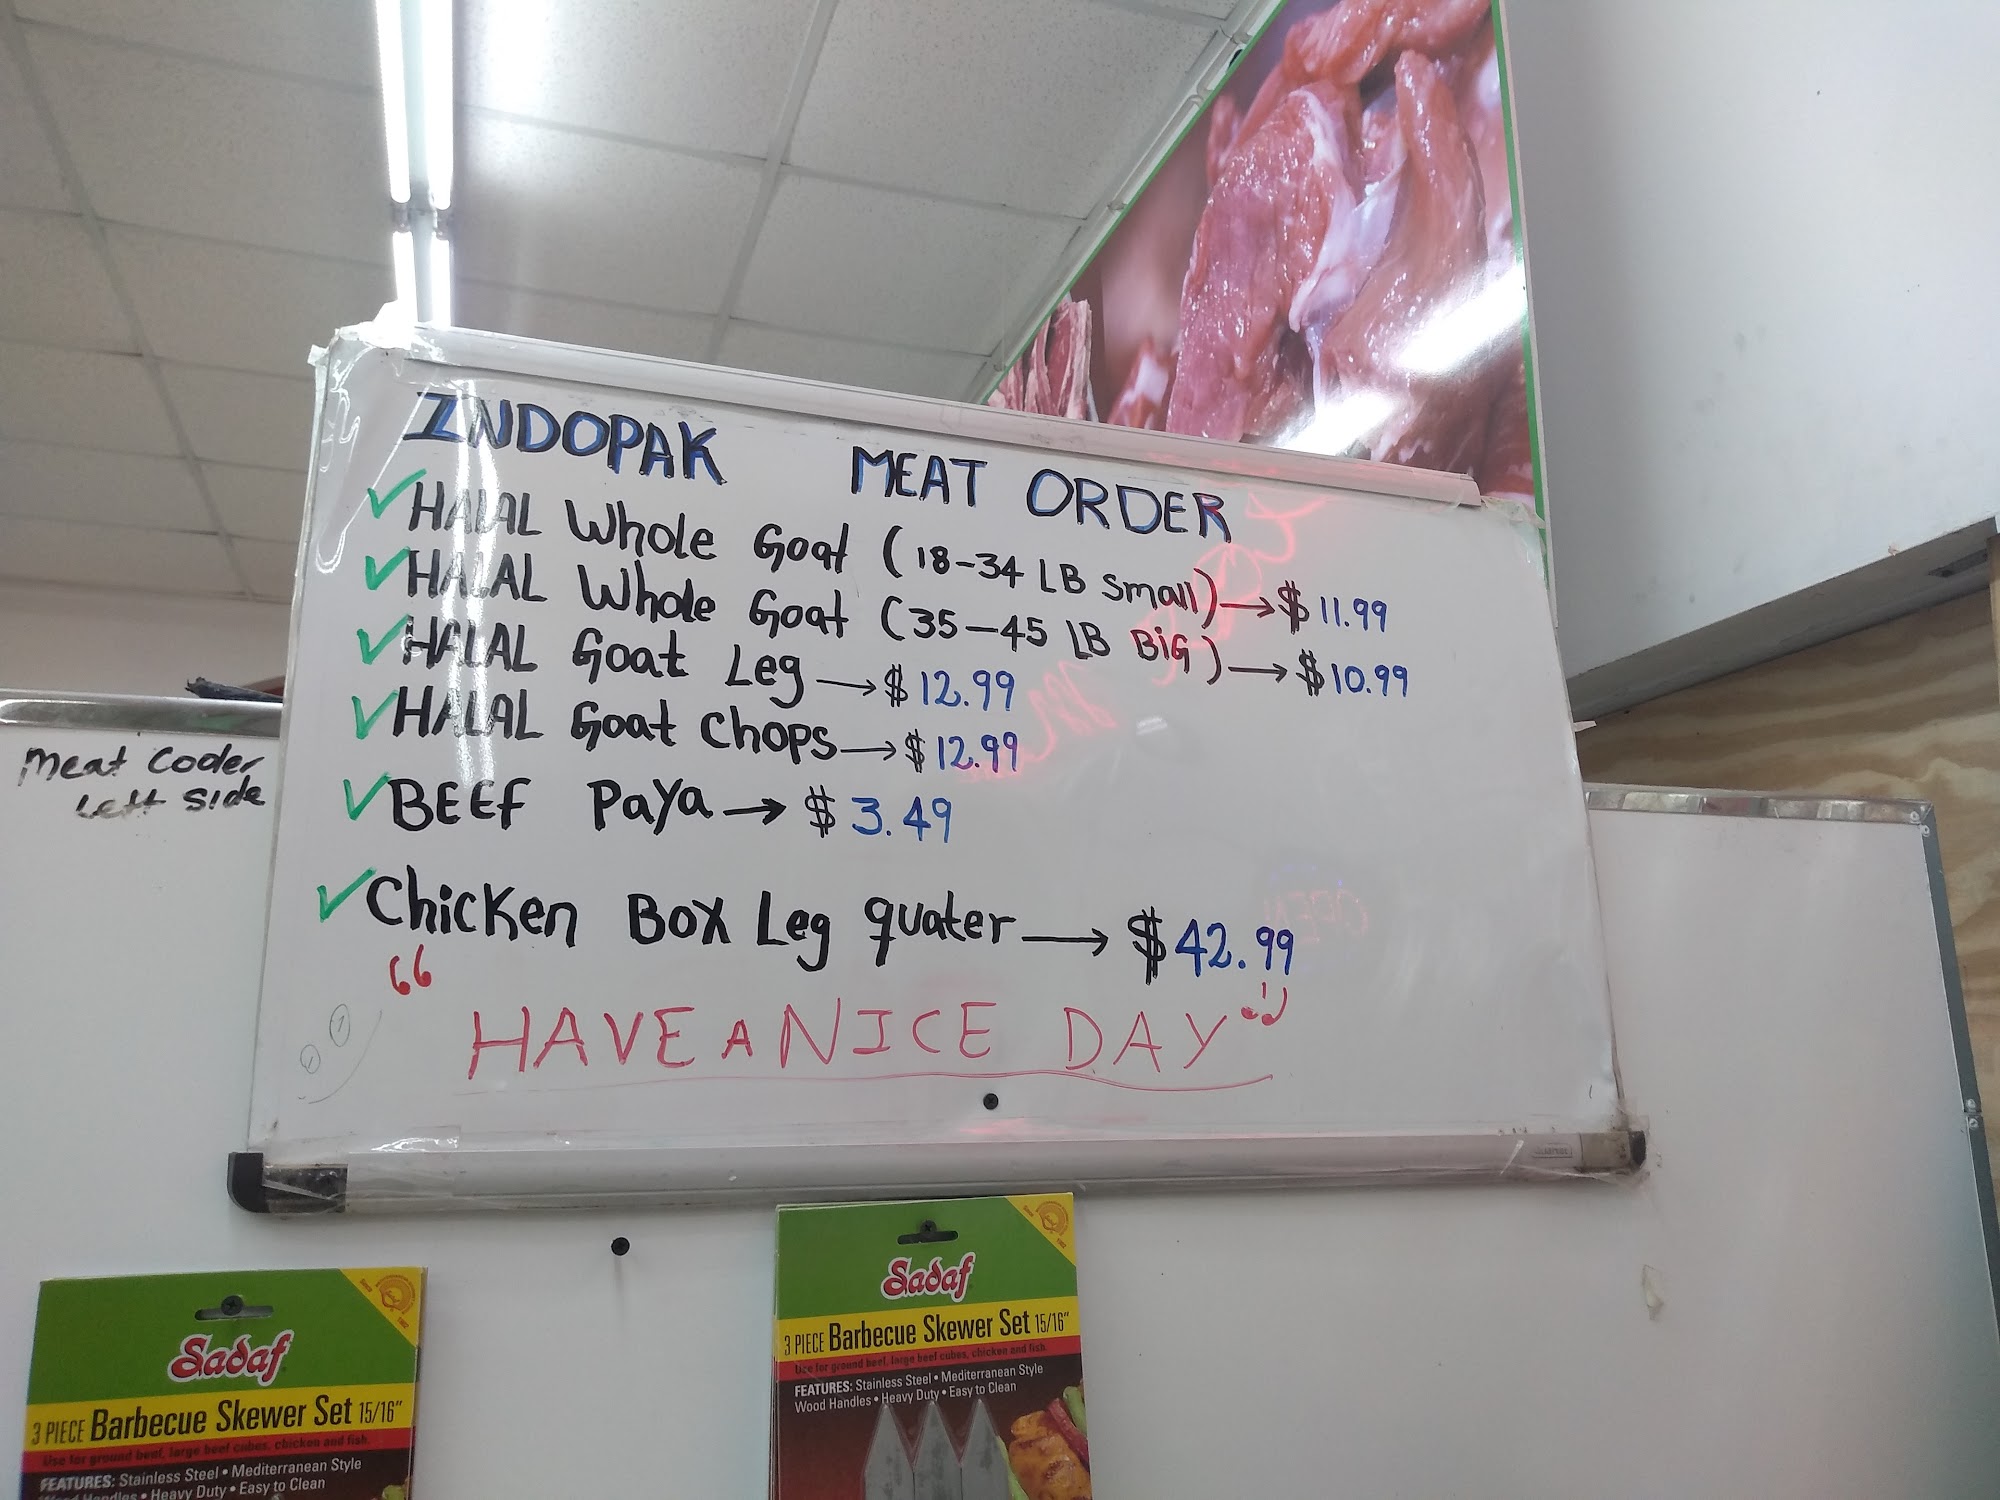 INDOPAK MEAT ORDER
✓ HALAL Whole Goat (18-34 LB Small) → $ 11.99
✓ HALAL Whole Goat (35-45 LB BiG) → $ 10.99
✓ HALAL Goat Leg → $ 12.99
✓ HALAL Goat Chops → $ 12.99
✓ BEEF PaYa → $ 3.49
✓ Chicken Box Leg quater → $ 42.99
“ HAVE A NICE DAY ”
Meat Cooler
Left Side
Sadaf
3 PIECE Barbecue Skewer Set 15/16"
Use for ground beef, large beef cubes, chicken and fish.
FEATURES: Stainless Steel • Mediterranean Style
Wood Handles • Heavy Duty • Easy to Clean
Sadaf
3 PIECE Barbecue Skewer Set 15/16"
Use for ground beef, large beef cubes, chicken and fish.
FEATURES: Stainless Steel • Mediterranean Style
Wood Handles • Heavy Duty • Easy to Clean